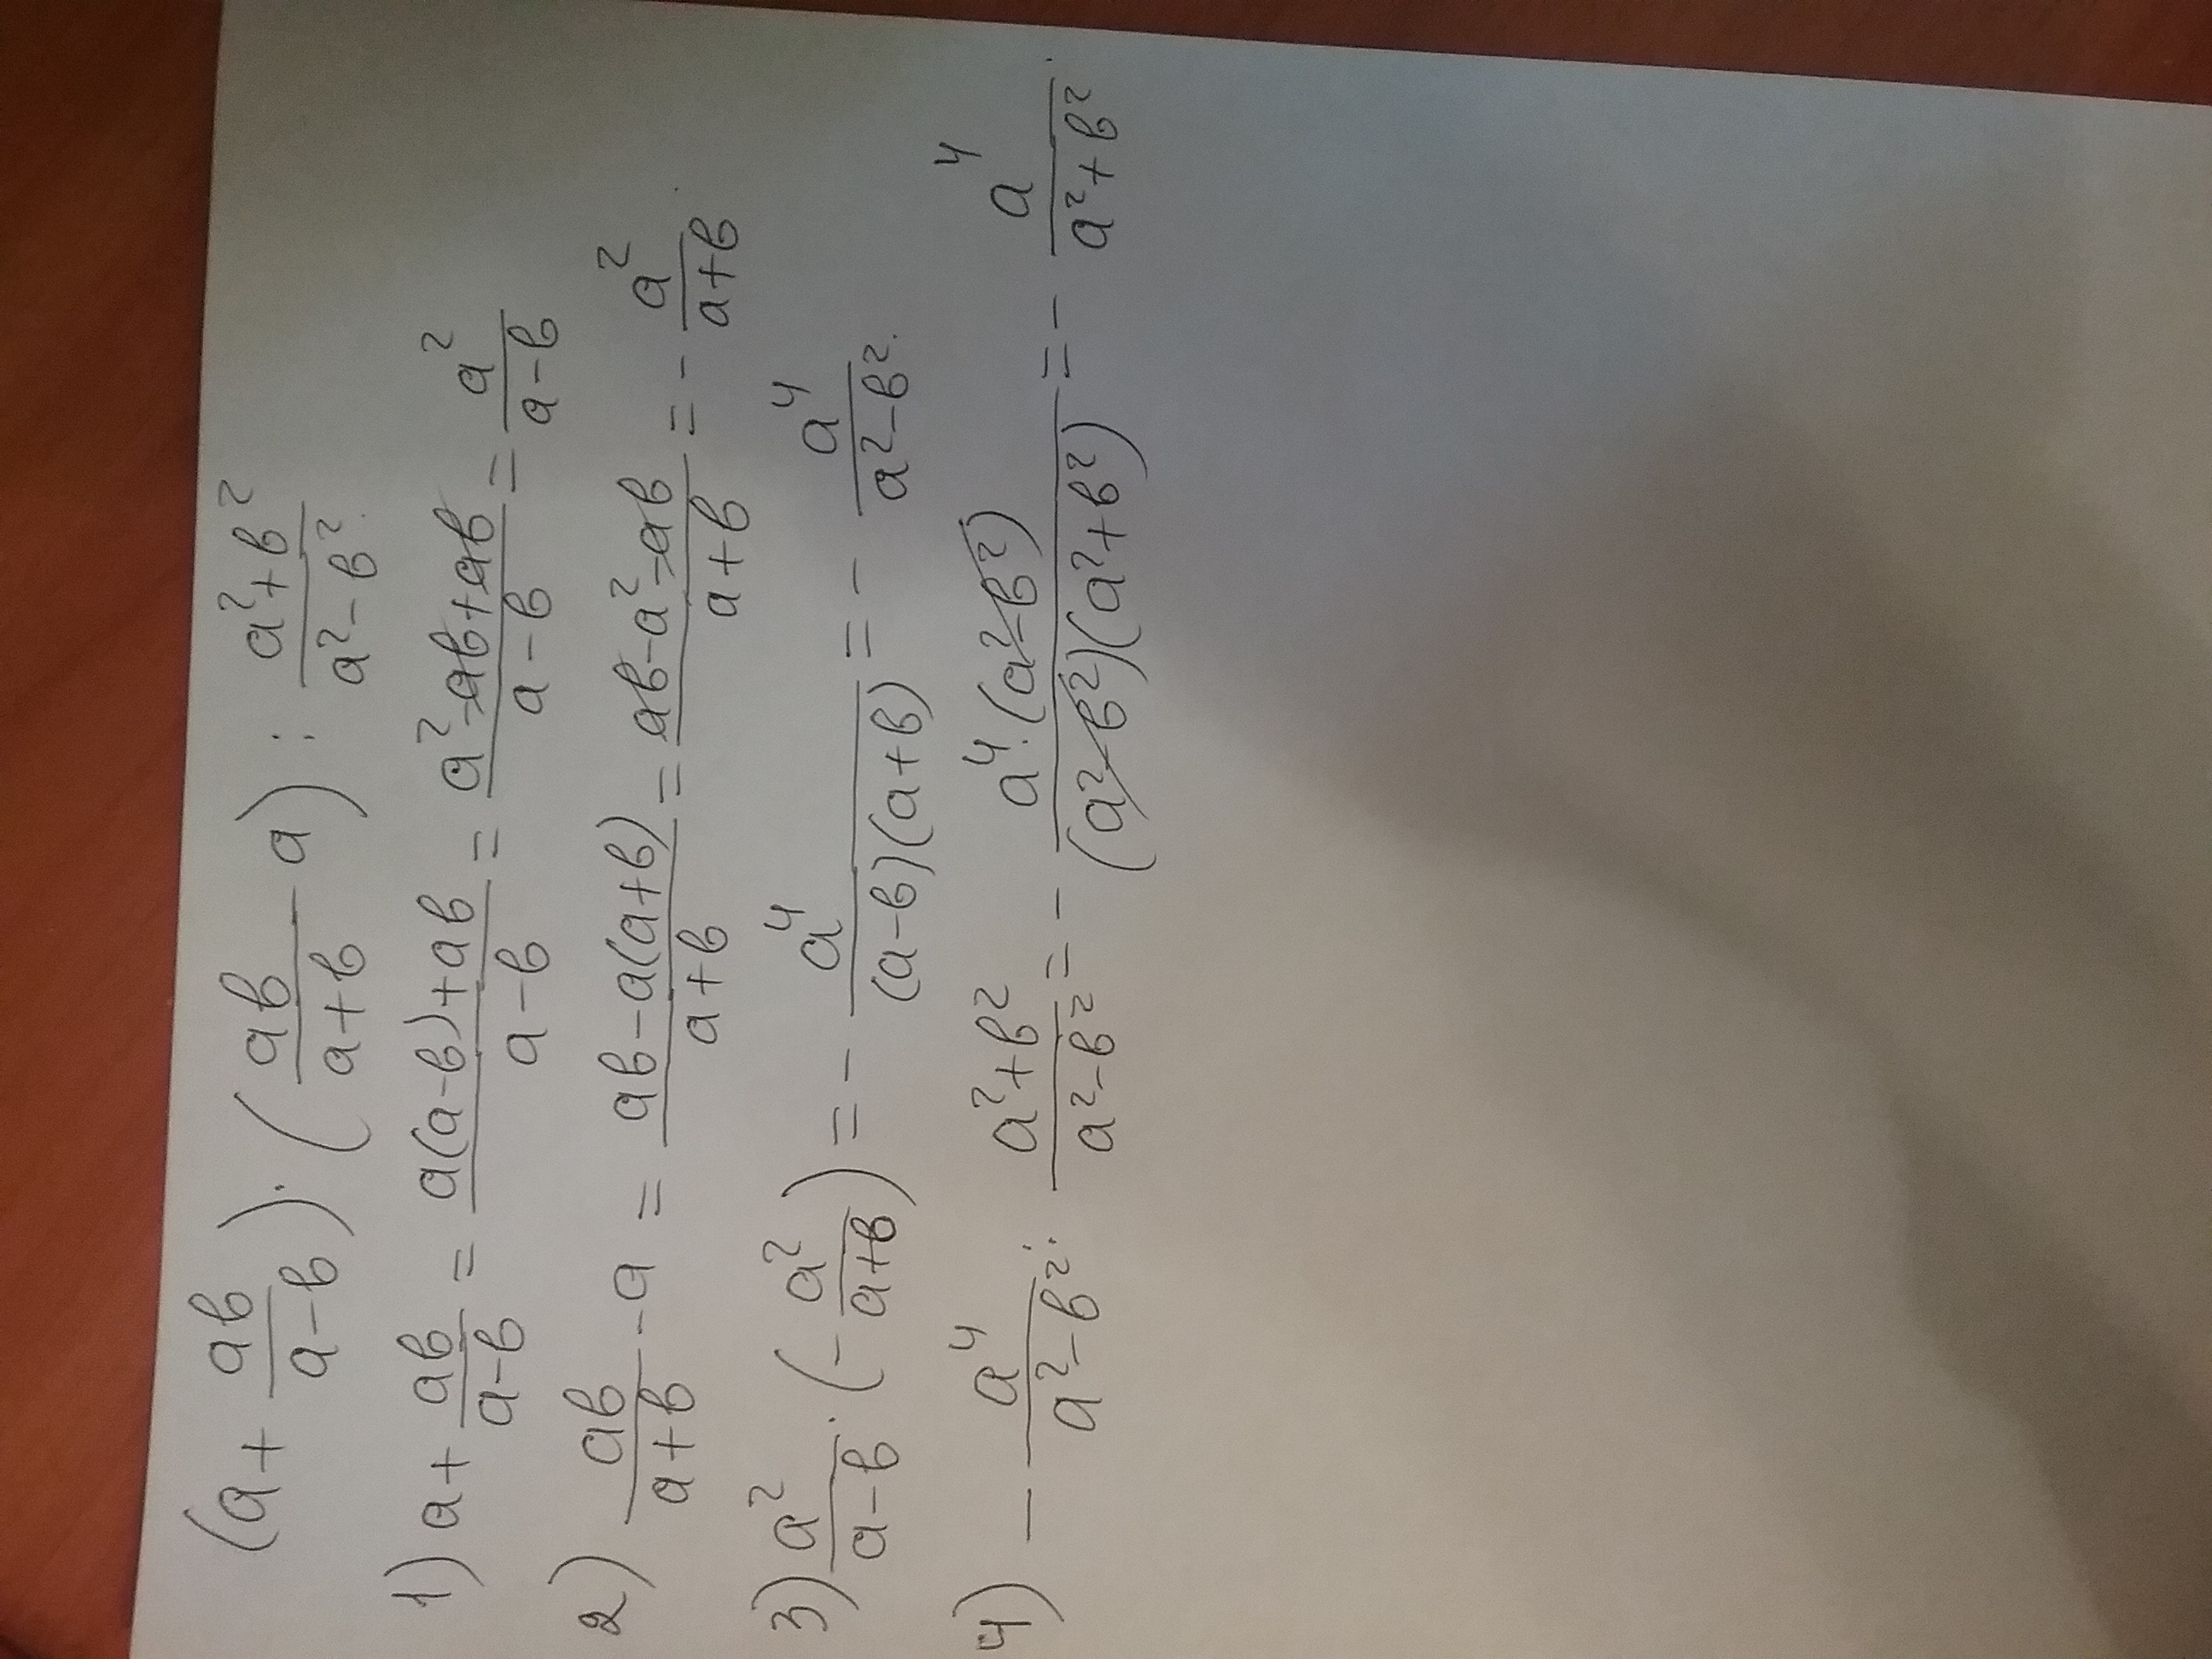 (a + ab/(a-b)) · (ab/(a+b) - a) : (a²+b²)/(a²-b²).
1) a + ab/(a-b) = (a(a-b)+ab)/(a-b) = (a²-ab+ab)/(a-b) = a²/(a-b)
2) ab/(a+b) - a = (ab-a(a+b))/(a+b) = (ab-a²-ab)/(a+b) = - a²/(a+b).
3) a²/(a-b) · (- a²/(a+b)) = - a⁴/((a-b)(a+b)) = - a⁴/(a²-b²).
4) - a⁴/(a²-b²) : (a²+b²)/(a²-b²) = - (a⁴·(a²-b²))/((a²-b²)(a²+b²)) = - a⁴/(a²+b²).